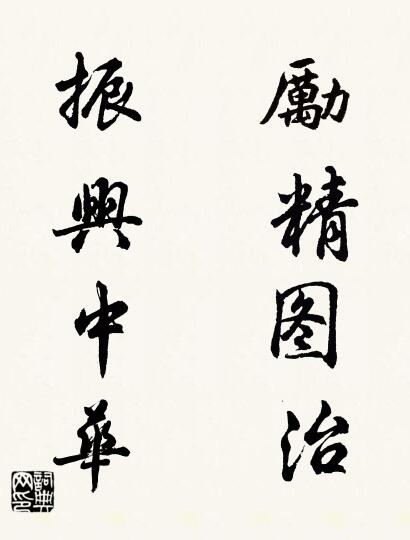 勵精图治
振興中華
詞典网